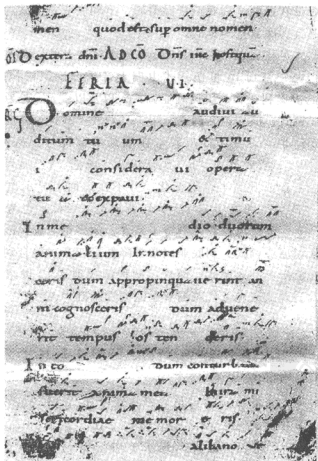 men quod est sup omne nomen
Dextera dni. AD CO Dns ihc postqua
FERIA VI.
RS Domine audivi au
ditum tu um & timu
i considera vi opera
tu a & expavi.
In me dio duorum
anima lium In notes
ceris dum appropinqua ve rint an
ni cognosceris dum advene
rit tempus os ten deris
In eo dum conturbata
fuerit anima mea In ira mi
sericordiae memor e ris
alibano